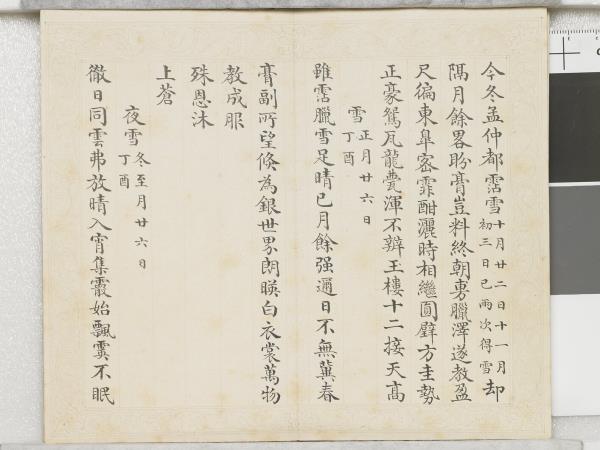 今冬孟仲都霑雪十月廿二日十一月初三日已兩次得雪却
隔月餘畧盼膏豈料終朝旉臘澤遂教盈
尺徧東皐密霏酣灑時相繼圓璧方圭勢
正豪鴛瓦龍甍渾不辨玉樓十二接天高
雪正月廿六日丁酉
雖霑臘雪足晴已月餘强邇日不無冀春
膏副所望倏為銀世界朗暎白衣裳萬物
教成服
殊恩沐
上蒼
夜雪冬至月廿六日丁酉
徹日同雲弗放晴入宵集霰始飄霙不眠